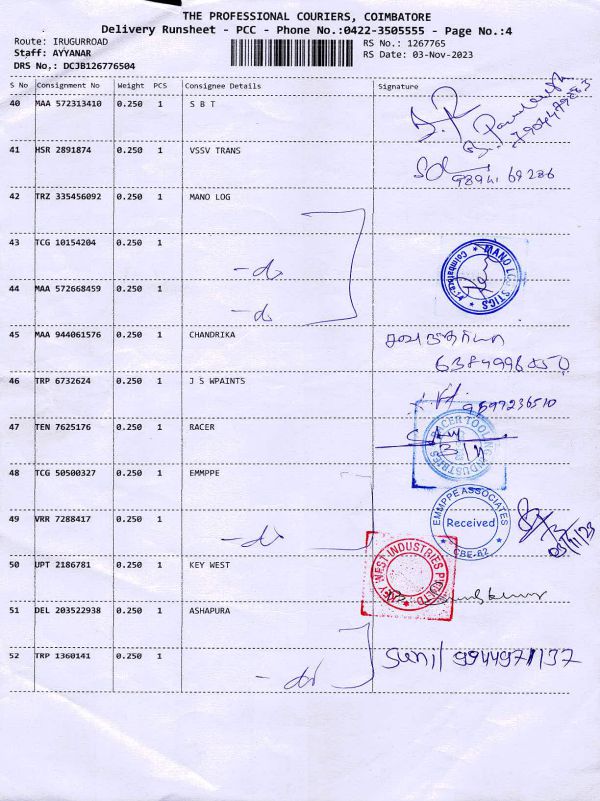 THE PROFESSIONAL COURIERS, COIMBATORE
Delivery Runsheet - PCC - Phone No.:0422-3505555 - Page No.:4
Route: IRUGURROAD
Staff: AYYANAR
DRS No,: DCJB126776504
RS No.: 1267765
RS Date: 03-Nov-2023
S No Consignment No Weight PCS Consignee Details Signature
40 MAA 572313410 0.250 1 S B T
41 HSR 2891874 0.250 1 VSSV TRANS
42 TRZ 335456092 0.250 1 MANO LOG
43 TCG 10154204 0.250 1
-do
MANO LOGISTICS
Coimbatore
44 MAA 572668459 0.250 1
-do
45 MAA 944061576 0.250 1 CHANDRIKA
46 TRP 6732624 0.250 1 J S WPAINTS
47 TEN 7625176 0.250 1 RACER
RACER TOOLING INDUSTRIES
48 TCG 50500327 0.250 1 EMMPPE
EMMPPE ASSOCIATES
Received
CBE-62
49 VRR 7288417 0.250 1
-do
03/11/23
50 UPT 2186781 0.250 1 KEY WEST
KEY WEST INDUSTRIES PVT LTD
51 DEL 203522938 0.250 1 ASHAPURA
52 TRP 1360141 0.250 1
-do
Sunil 9944971137